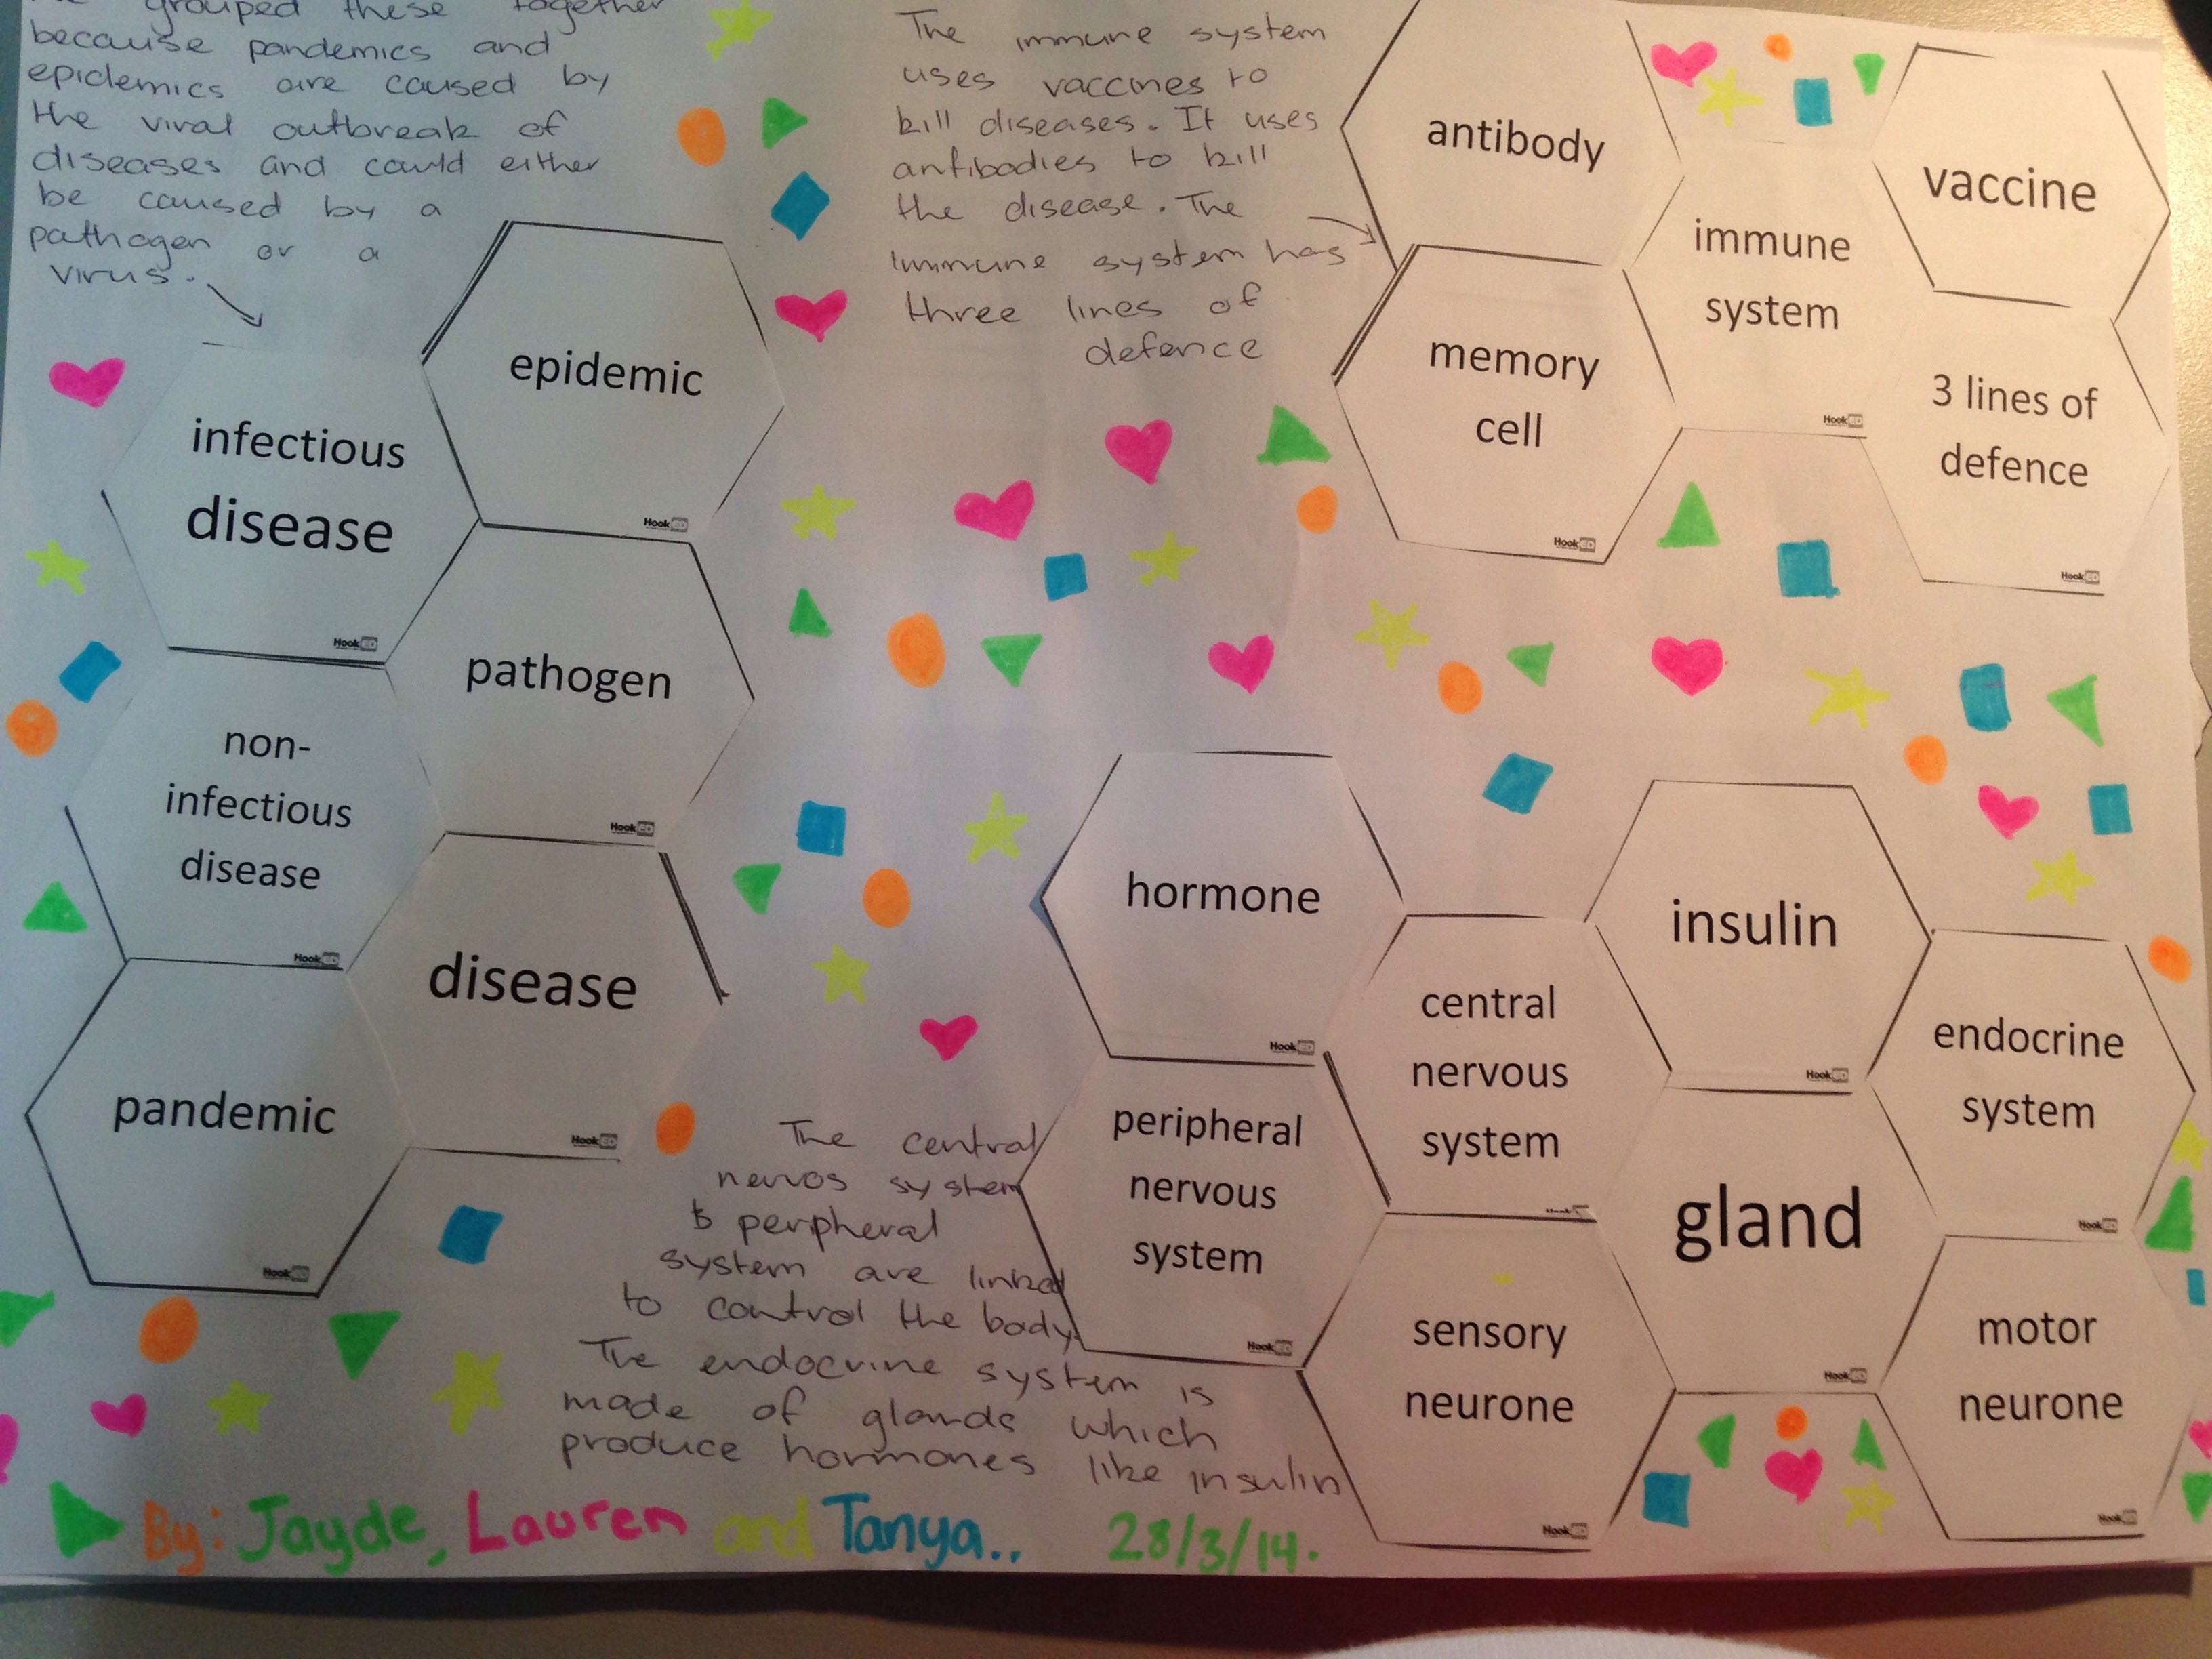 grouped these together
because pandemics and
epidemics are caused by
the viral outbreak of
diseases and could either
be caused by a
pathogen or a
virus.
The immune system
uses vaccines to
kill diseases. It uses
antibodies to kill
the disease. The
immune system has
three lines of
defence
antibody
vaccine
immune
system
HookED
memory
cell
HookED
3 lines of
defence
HookED
epidemic
HookED
infectious
disease
HookED
pathogen
HookED
non-
infectious
disease
HookED
disease
HookED
pandemic
HookED
hormone
HookED
insulin
HookED
central
nervous
system
endocrine
system
HookED
peripheral
nervous
system
HookED
gland
HookED
sensory
neurone
HookED
motor
neurone
HookED
The central
nervos system
& peripheral
system are linked
to control the body
The endocrine system is
made of glands which
produce hormones like insulin
By: Jayde, Lauren and Tanya.. 28/3/14.